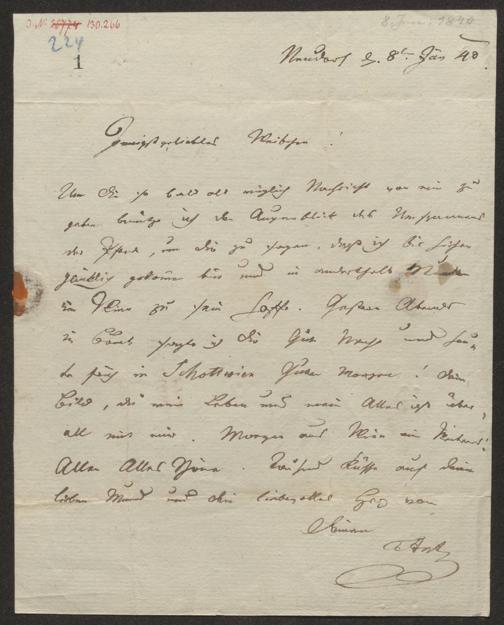 J. N. 36774 130.266
8. Jän. 1840
224
1
Neudorf d. 8t Jän 40.
Innigstgeliebtes Weibchen!
Um Dir so bald als möglich Nachricht von mir zu
geben benütze ich den Augenblick des Umspannens
der Pferde, um Dir zu sagen, daß ich bis hieher
glücklich gekommen bin und in anderthalb Stunden
in Wien zu sein hoffe. Gestern Abends
in sagte ich Dir Gute Nacht und heu-
te früh in Schottwien Guten Morgen! Dein
Bild, Du mein Leben und mein Alles ist über-
all mit mir. Morgen aus Wien ein Mehreres!
Allen Alles Schöne. Tausend Küsse auf Deinen
lieben Mund und Dein liebevolles Herz von
Deinem